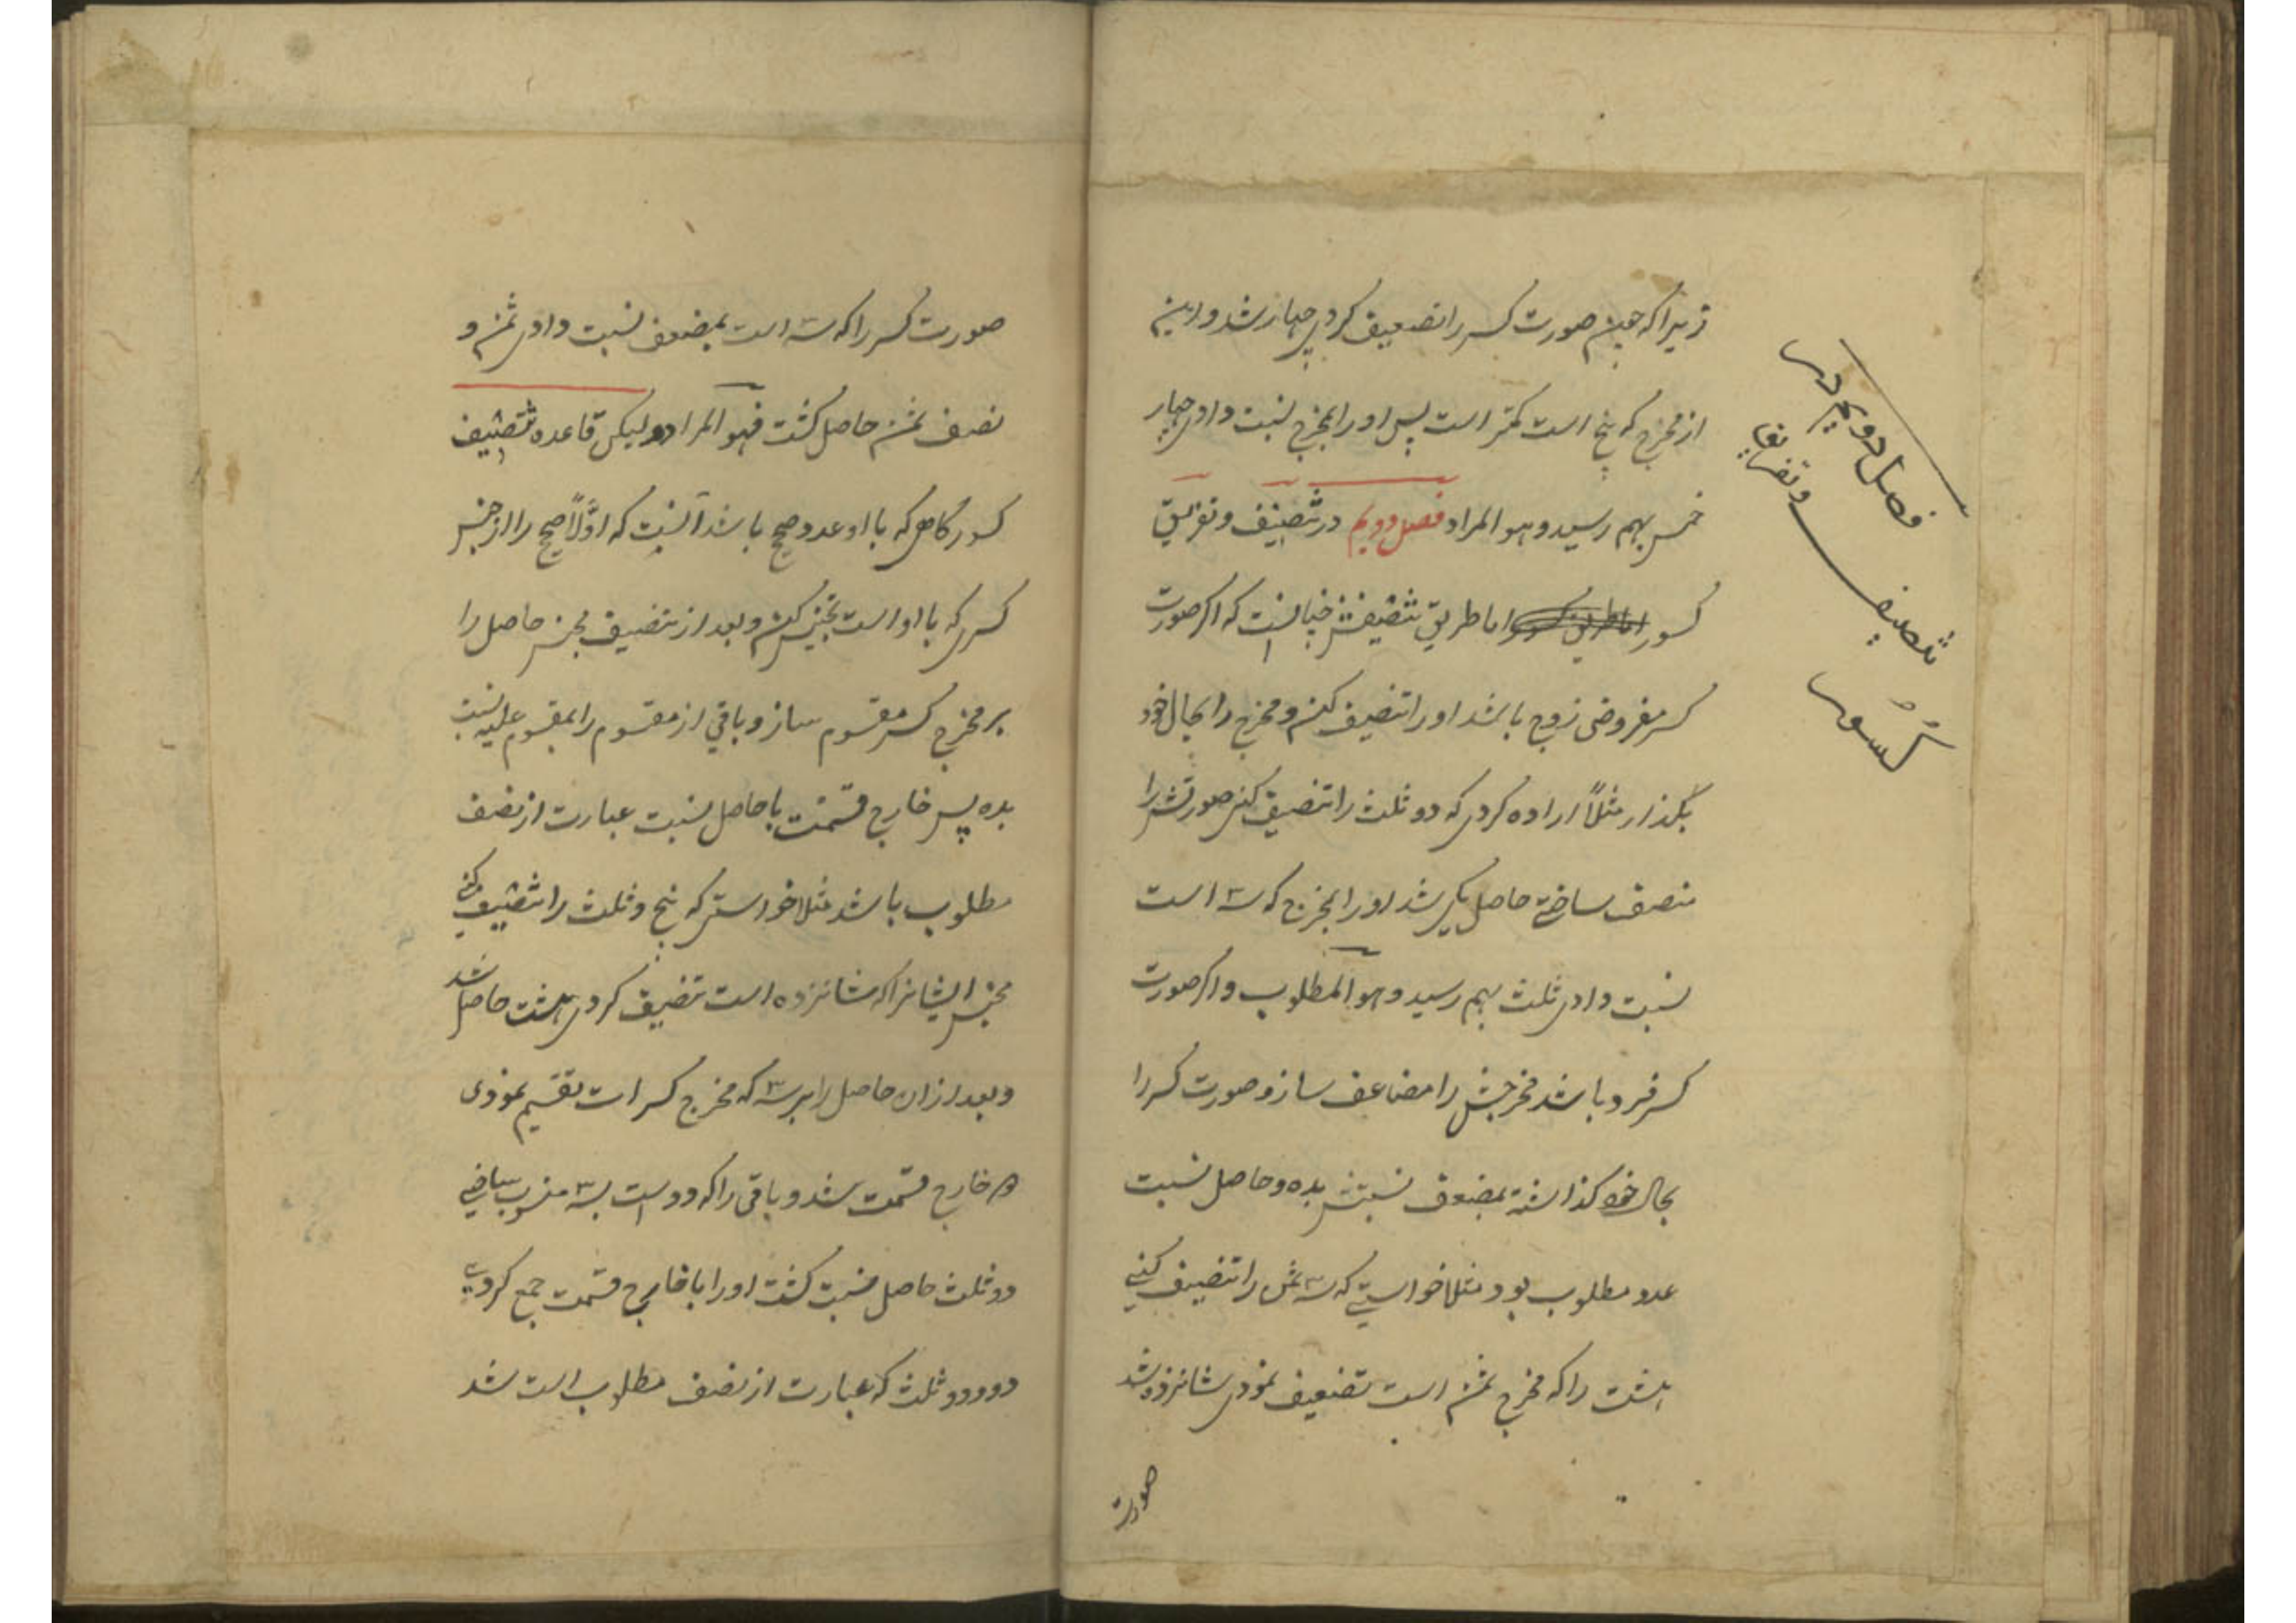 زیرا که چون صورت کسر را تضعیف کردی چهار شد و این
از مخرج که پنج است کمتر است پس او را بمخرج نسبت دادی چهار
خمس بهم رسید و هو المراد فصل دویم در تنصیف و تفریق
کسور اما طریق تنصیفش چنانست که اگر صورت
کسر مفروض زوج باشد او را تنصیف کن و مخرج را بحال خود
بگذار مثلاً اراده کردی که دو ثلث را تنصیف کنی صورتش را
منصف ساختی حاصل یکی شد او را بمخرج که سه است
نسبت دادی ثلث بهم رسید و هو المطلوب و اگر صورت
کسر فرد باشد مخرجش را مضاعف ساز و صورت کسر را
بحال خود گذاشته بمضعف نسبتش بده و حاصل نسبت
عدد مطلوب بود مثلا خواستی که سه ثمن را تنصیف کنی
هشت را که مخرج ثمن است تضعیف نمودی شانزده شد
صورت
فصل دویم در
تنصیف و تفریق
کسور
صورت کسر را که سه است بمضعف نسبت دادی ثمن و
نصف ثمن حاصل گشت فهو المراد و لیکن قاعده تنصیف
کسور گاهی که با او عدد صحیح باشد آنست که اوّلاً صحیح را از جنس
کسری که با او است تجنیس کن و بعد از تنصیف مجنس حاصل را
بر مخرج کسر مقسوم ساز و باقی از مقسوم را بمقسوم علیه نسبت
بده پس خارج قسمت با حاصل نسبت عبارت از نصف
مطلوب باشد مثلا خواستی که پنج و ثلث را تنصیف کنی
مجنس ایشانرا که شانزده است تنصیف کردی هشت حاصل شد
و بعد از آن حاصل را بر سه که مخرج کسر است تقسیم نمودی
خارج قسمت شد و باقی را که دو است بسه منسوب ساختی
دو ثلث حاصل نسبت گشت او را با خارج قسمت جمع کردی
دو و دو ثلث که عبارت از نصف مطلوب است شد